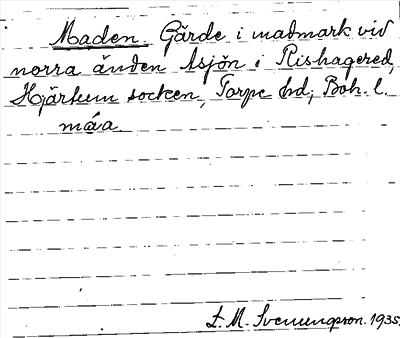 Maden. Gärde i madmark vid
norra änden Åsjön i Rishagered,
Hjärtum socken, Torpe hd, Boh. l.
måa.
L. M. Svenungsson. 1935.